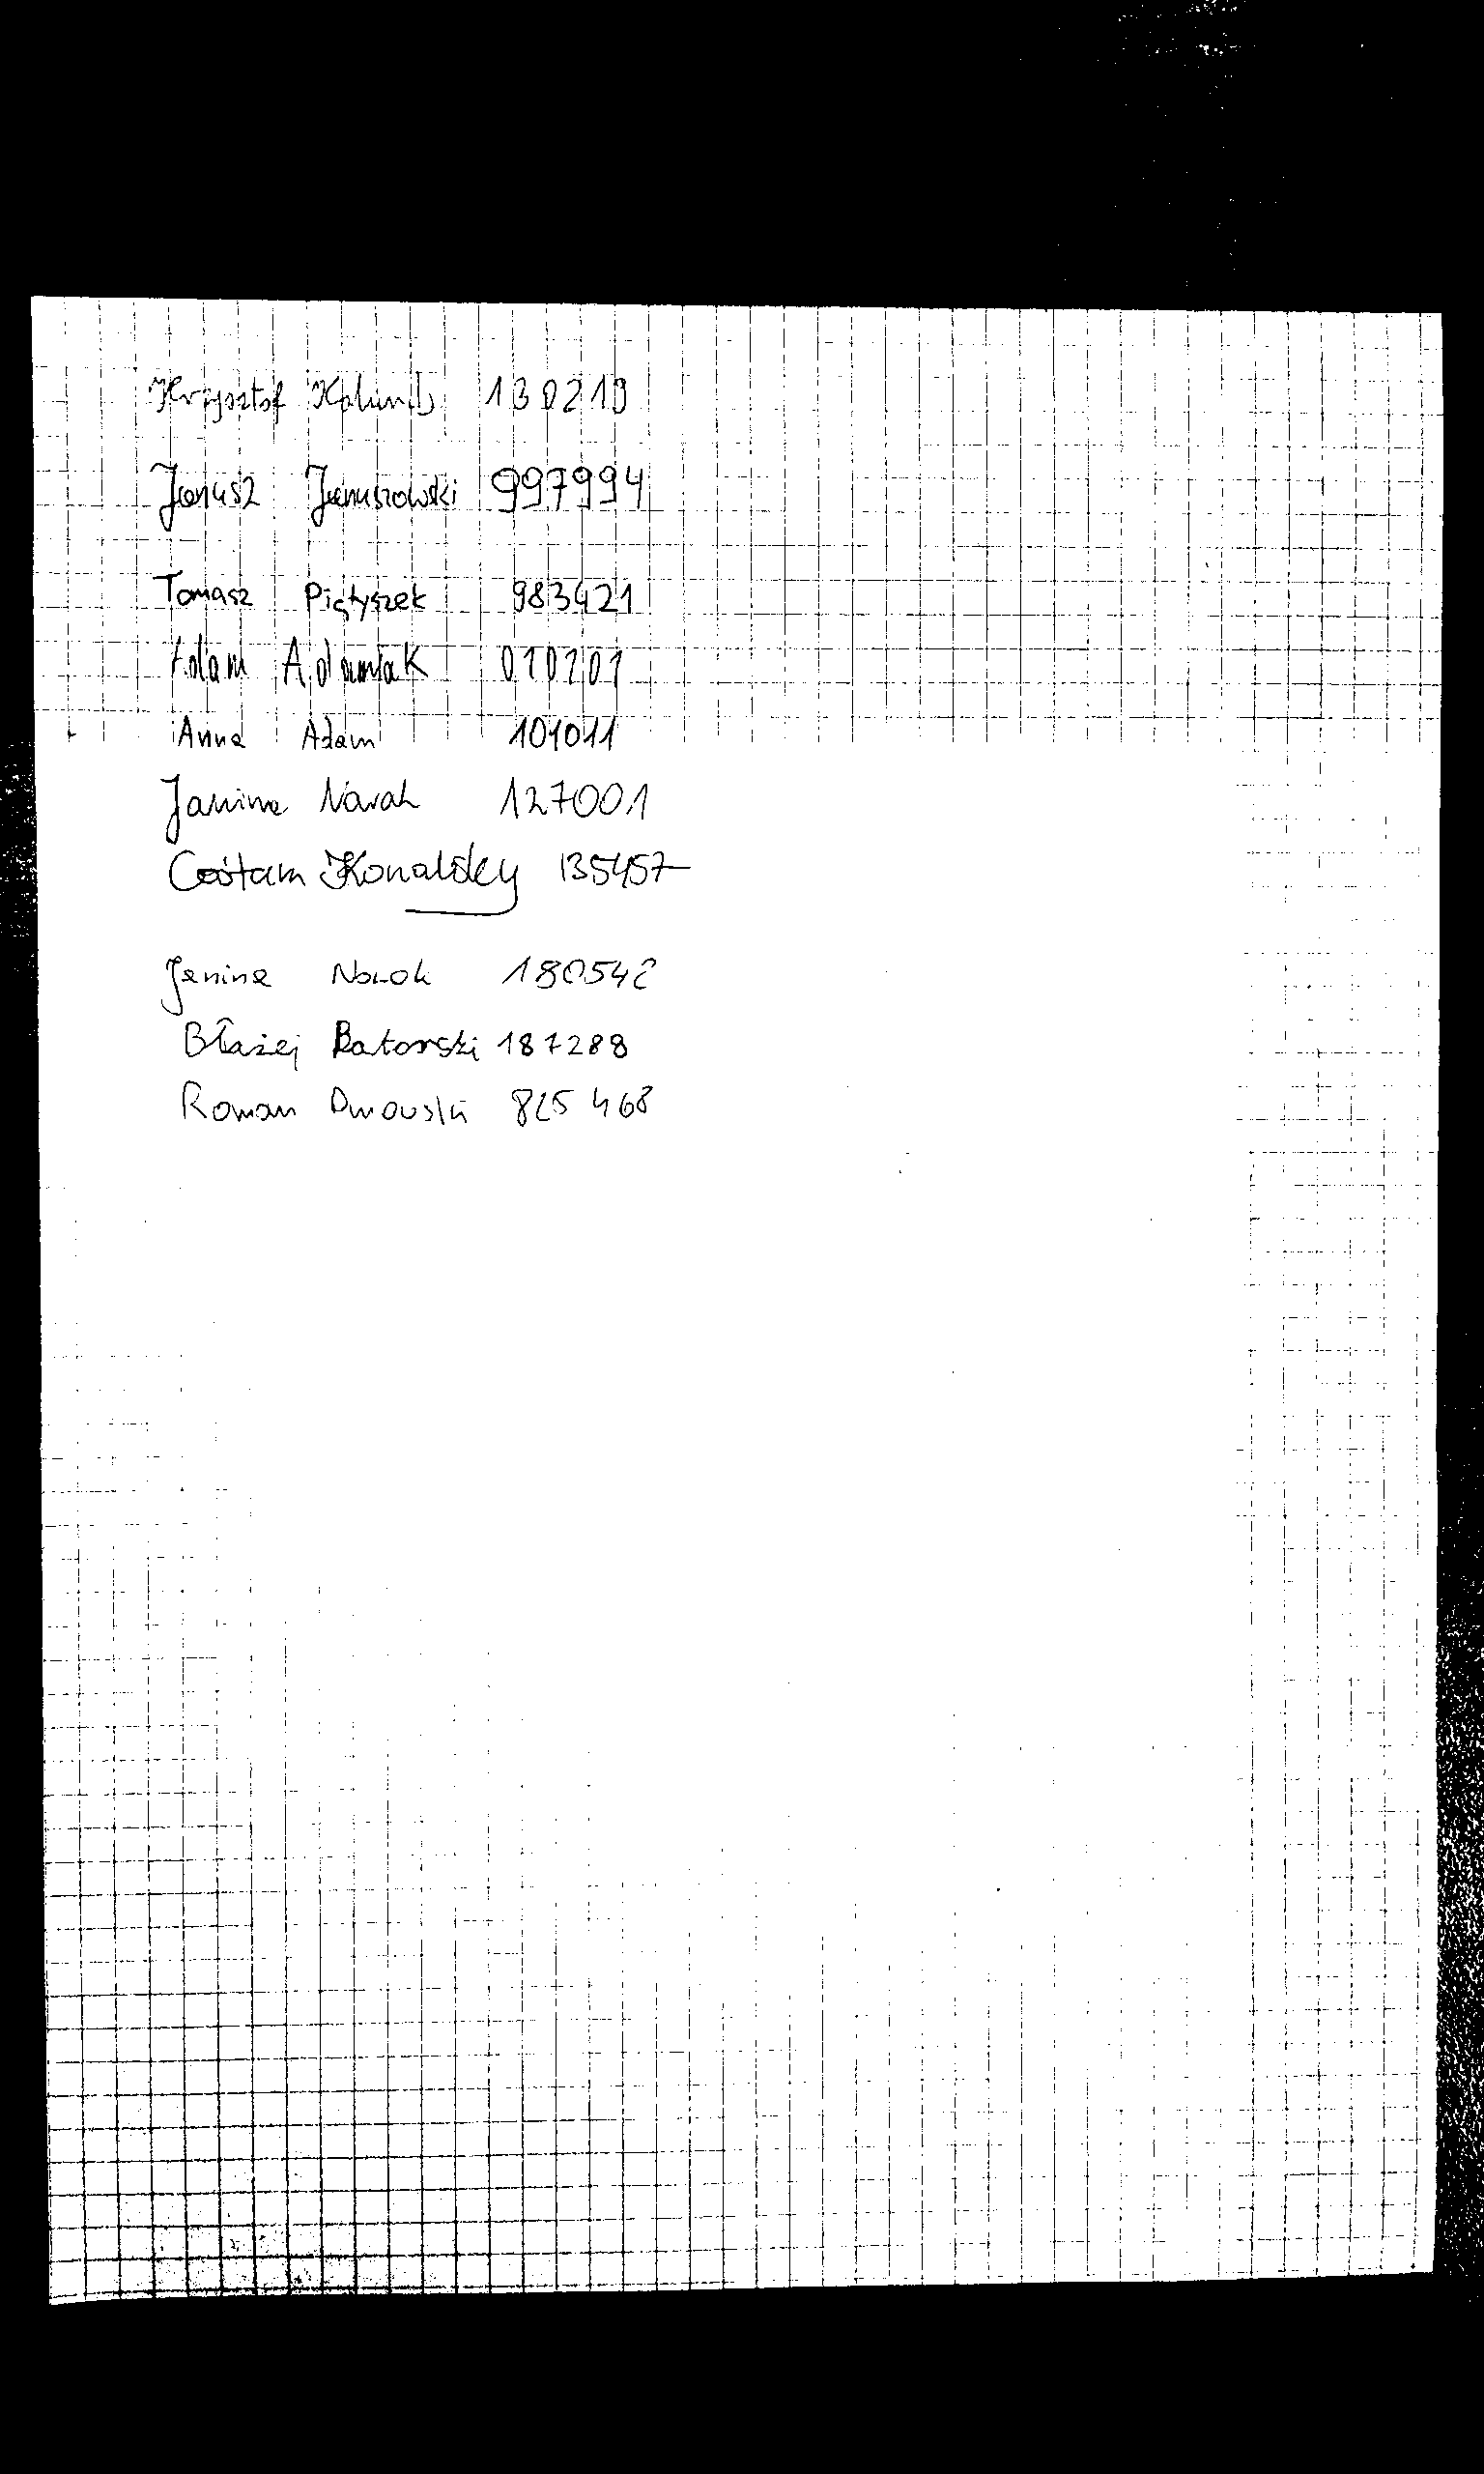 Krzysztof 130219
Janusz Januszowski 997994
Tomasz Piątyszek 983421
Adam Adamiak 010101
Anna Adam 101011
Janina Nowak 127001
Cośtam Konaldsky 135457
Janina Nowak 180542
Błażej Batorski 187288
Roman Dmowski 825 468